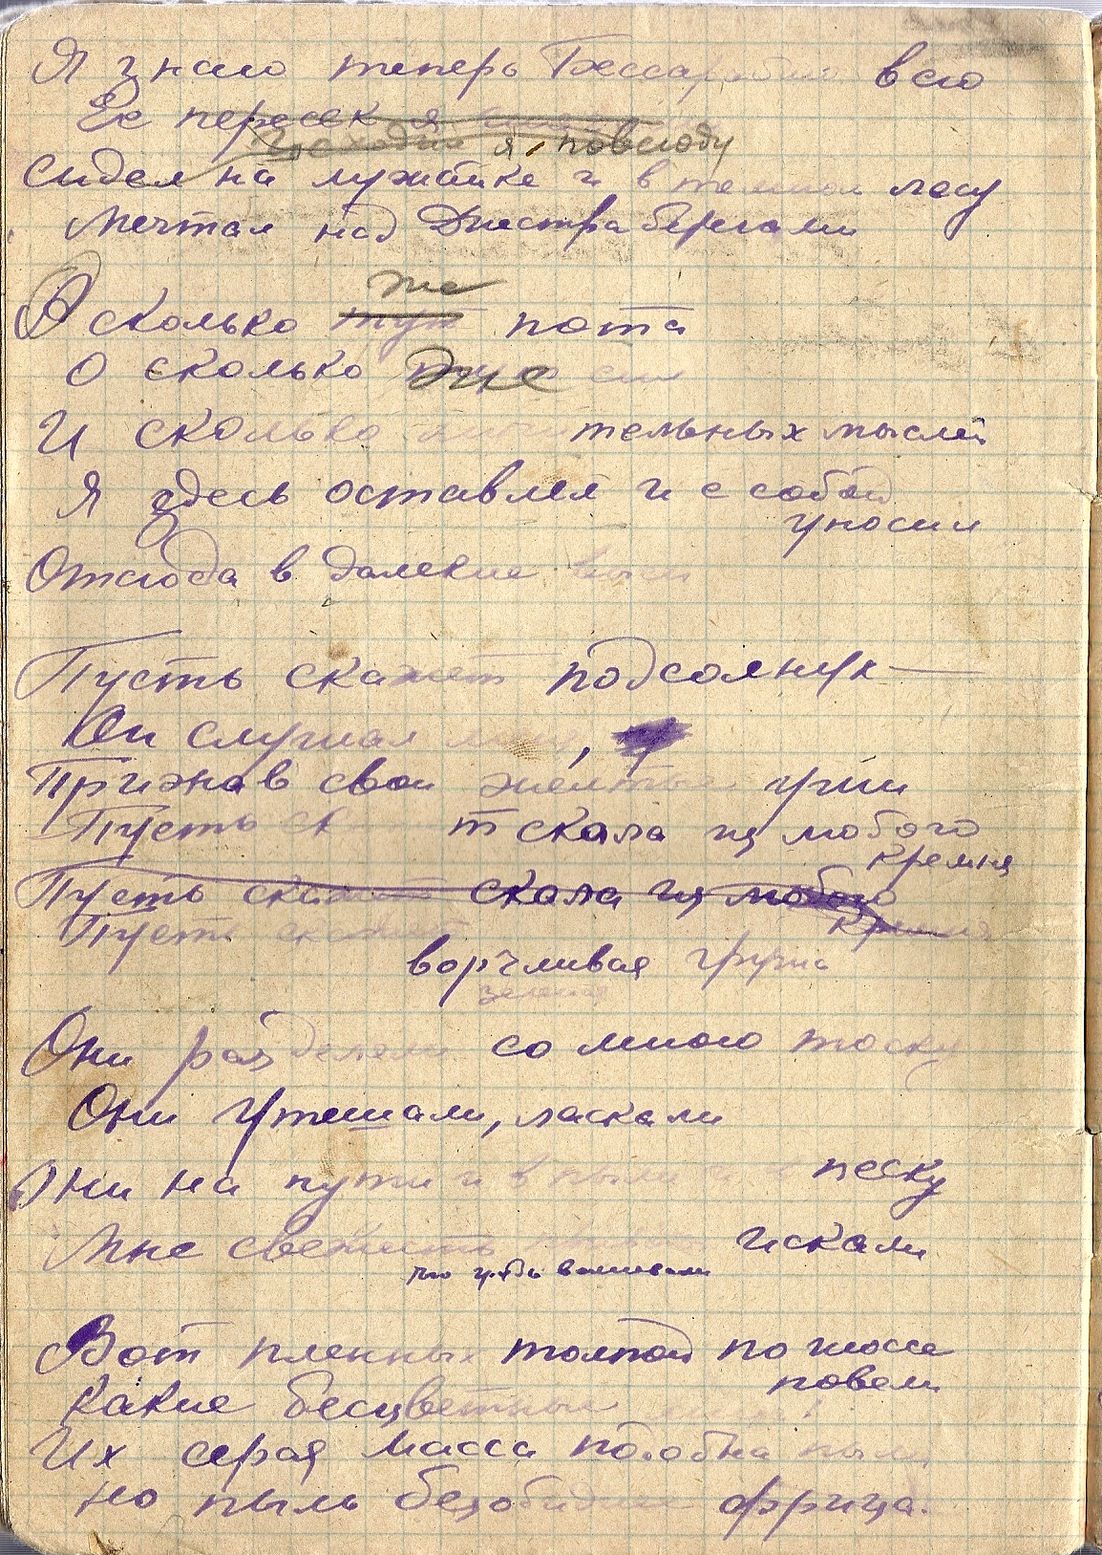 Я знаю теперь Бессарабию всю
Ее пересек я
Исходил я повсюду
Сидел на лужайке и в темном лесу
Мечтал над Днестра берегами
же
О сколько тут пота
О сколько же сил
И сколько мучительных мыслей
Я здесь оставлял и с собой
уносил
Отсюда в далекие
Пусть скажет подсолнух —
Он слушал меня,
Прижав свои желтые уши
Пусть скажет скала из любого
кремня
Пусть скажет скала из любого
кремня
Пусть скажет
ворчливая груша
зеленая
Они разделяли со мною тоску
Они утешали, ласкали
Они на пути и в пыли и в песку
Мне свежить искали
Вот пленных толпой по шоссе
повели
Какие бесцветные лица!
Их серая масса подобна пыли
Но пыль безобидней фрица.